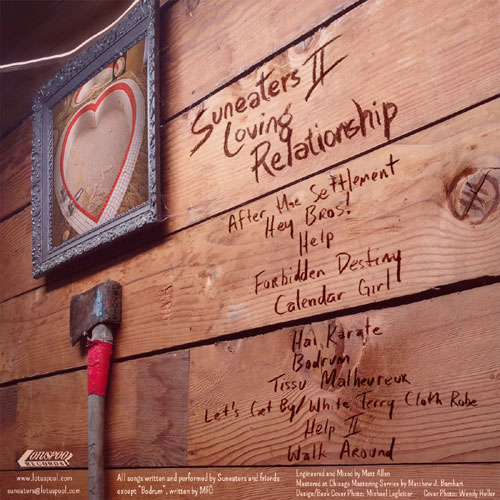 Suneaters II
Loving
Relationship
After The Settlement
Hey Bros!
Help
Forbidden Destiny
Calendar Girl
Hai Karate
Bodrum
Tissu Malheureux
Let's Get By/White Terry Cloth Robe
Help II
Walk Around
LOTUSPOOL
RECORDS
www.lotuspool.com
suneaters@lotuspool.com
All songs written and performed by Suneaters and friends
except "Bodrum", written by MFÖ
Engineered and Mixed by Matt Allen
Mastered at Chicago Mastering Service by Matthew J. Barnhart
Design/Back Cover Photo: Michael Logleiter Cover Photo: Wendy Heller